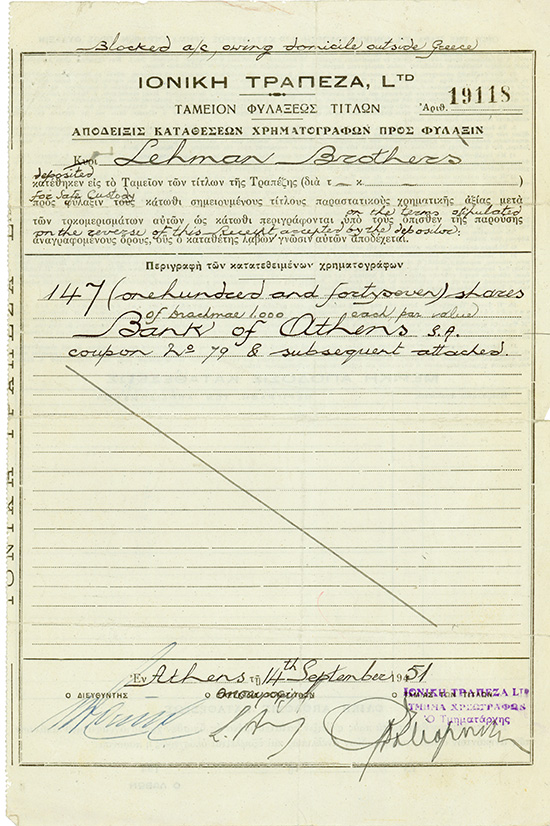 Blocked a/c, owing domicile outside Greece
ΙΟΝΙΚΗ ΤΡΑΠΕΖΑ, LTD
ΤΑΜΕΙΟΝ ΦΥΛΑΞΕΩΣ ΤΙΤΛΩΝ
Ἀριθ. 19118
ΑΠΟΔΕΙΞΙΣ ΚΑΤΑΘΕΣΕΩΝ ΧΡΗΜΑΤΟΓΡΑΦΩΝ ΠΡΟΣ ΦΥΛΑΞΙΝ
Κυρι Lehman Brothers
deposited
κατέθηκεν εἰς τὸ Ταμεῖον τῶν τίτλων τῆς Τραπέζης (διὰ τ κ )
for Safe Custody
πρὸς φύλαξιν τοὺς κάτωθι σημειουμένους τίτλους παραστατικοὺς χρηματικῆς ἀξίας μετὰ
on the terms stipulated
τῶν τοκομερισμάτων αὐτῶν ὡς κάτωθι περιγράφονται ὑπὸ τοὺς ὄπισθεν τῆς παρούσης
on the reverse of this receipt accepted by the depositor.
ἀναγραφομένους ὅρους, οὓς ὁ καταθέτης λαβὼν γνῶσιν αὐτῶν ἀποδέχεται.
Περιγραφὴ τῶν κατατεθειμένων χρηματογράφων
147 (one hundred and fortyseven) shares
of drachmae 1.000 each par value
Bank of Athens S.A.
coupon No 79 & subsequent attached.
Ἐν Athens τῇ 14th September 1951
Ο ΔΙΕΥΘΥΝΤΗΣ
ΙΟΝΙΚΗ ΤΡΑΠΕΖΑ LTD
ΤΜΗΜΑ ΧΡΕΟΓΡΑΦΩΝ
Ὁ Τμηματάρχης
ΙΟΝΙΚΗ ΤΡΑΠΕΖΑ